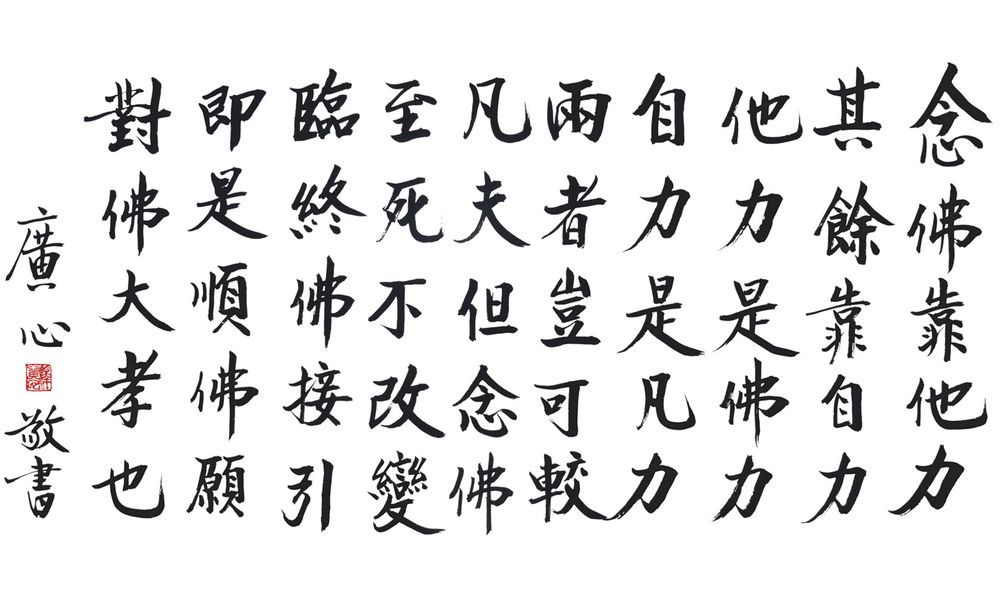 念佛靠他力
其餘靠自力
他力是佛力
自力是凡力
兩者豈可較
凡夫但念佛
至死不改變
臨終佛接引
即是順佛願
對佛大孝也
廣心敬書